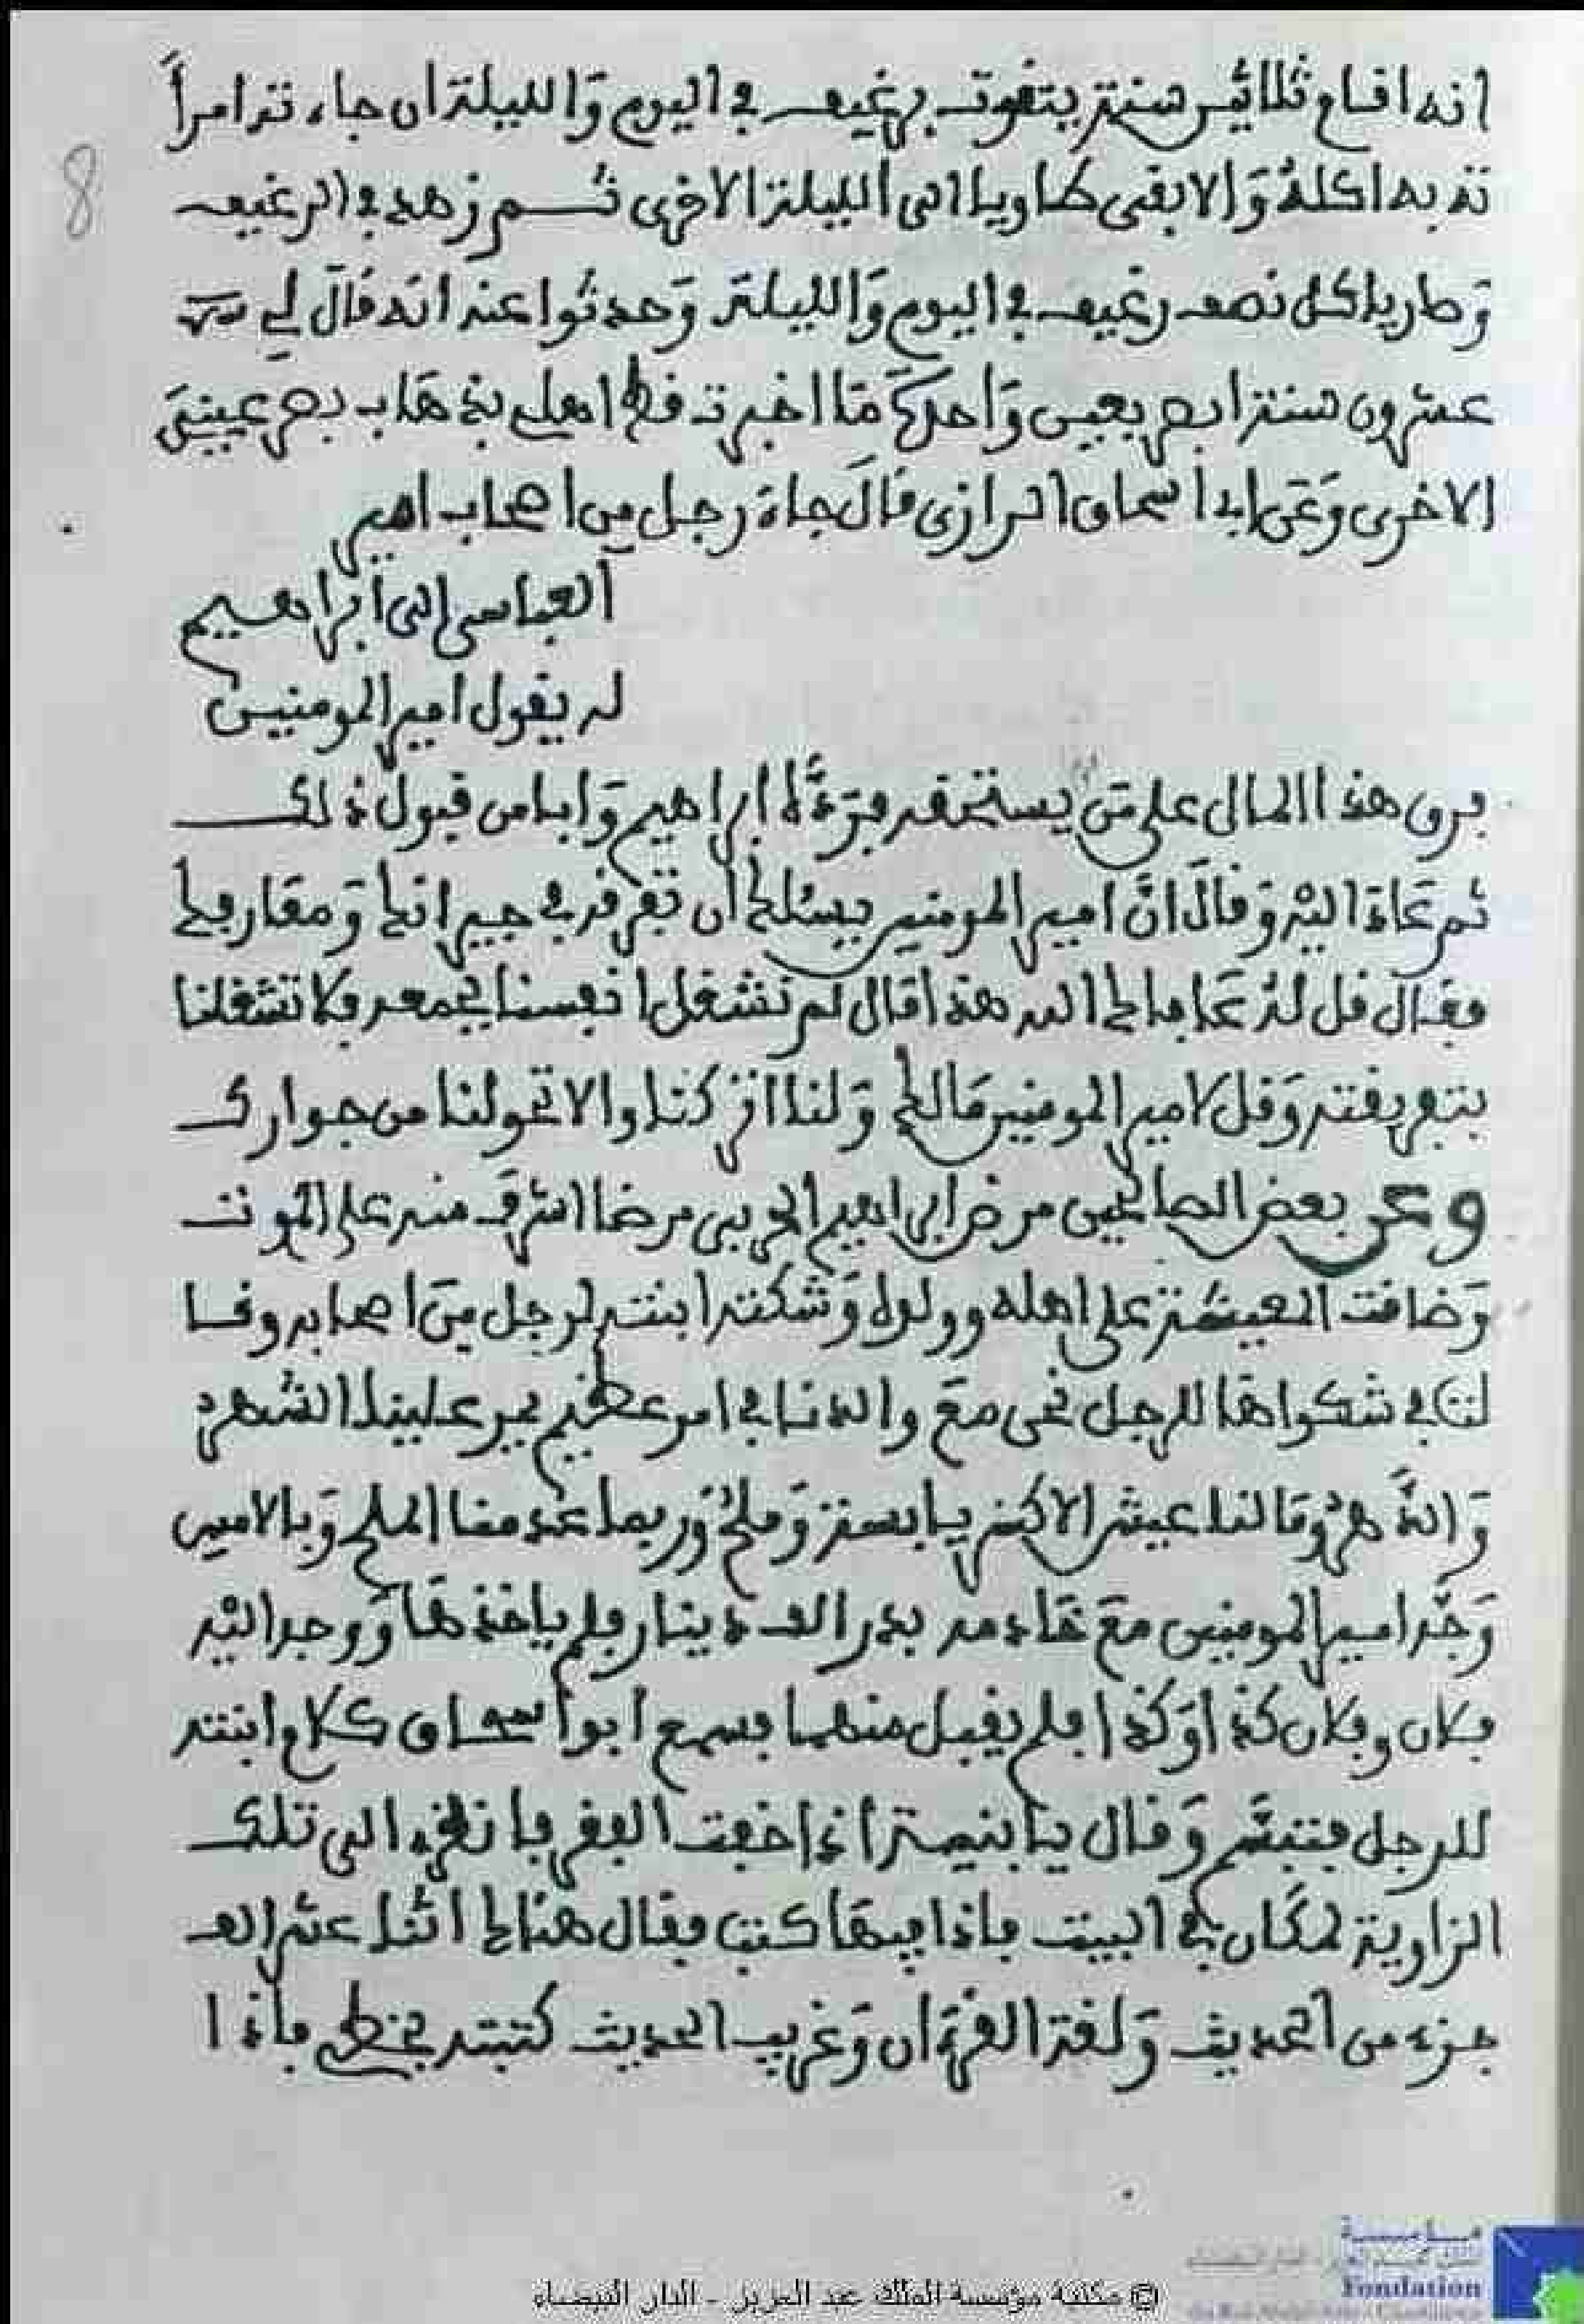 انه اقام ثلاثين سنة يتقوت برغيف في اليوم والليلة ان جاءته امرأ
ته به اكله والا بقى طاويا الى الليلة الاخرى ثم زهد في الرغيف
وصار ياكل نصف رغيف في اليوم والليلة وحدثوا عنه انه قال لي
عشرون سنة ابصر بعين واحدة ما اخبرت قط اهلي بذهاب بصر عيني
الاخرى وعن ابي اسحاق الرازي قال جاء رجل من اصحاب امير
العباسي الى ابراهيم
له يقول امير المومنين
فرق هذا المال على من يستحقه فرده ابراهيم وابا من قبول ذلك
ثم عاد اليه وقال ان امير المومنين يسئلك ان تفرقه في جيرانك ومعارفك
فقال قل له عافاك الله هذا مال لم نشغل انفسنا بجمعه ولا تشغلنا
بتفرقته وقل لامير المومنين مالك ولنا اتركنا والا تحولنا من جوارك
وعن بعض الصالحين مرض ابراهيم الحربي مرضا اشرف منه على الموت
وضاقت المعيشة على اهله وولده وشكته ابنته لرجل من اصحابه وقا
لت في شكواها للرجل نحن مع والدنا في امر عظيم يمر علينا الشهر
والدهر وما لنا عيش الا كسر يابسة وملح وربما عدمنا الملح وبالامس
وجه امير المومنين مع خادمه بدر الف دينار فلم ياخذها ووجه اليه
فلان وفلان كذا وكذا فلم يقبل منهما فسمع ابو اسحاق كلام ابنته
للرجل فتبسم وقال يا بنية اذا خفت الفقر فانظر الى تلك
الزاوية لمكان في البيت فاذا فيها كتب فقال هناك اثنا عشر الف
جزء من الحديث ولغة القرءان وغريب الحديث كتبته بخطي فاذا
8
مؤسسة
Fondation
© مكتبة مؤسسة الملك عبد العزيز - الدار البيضاء